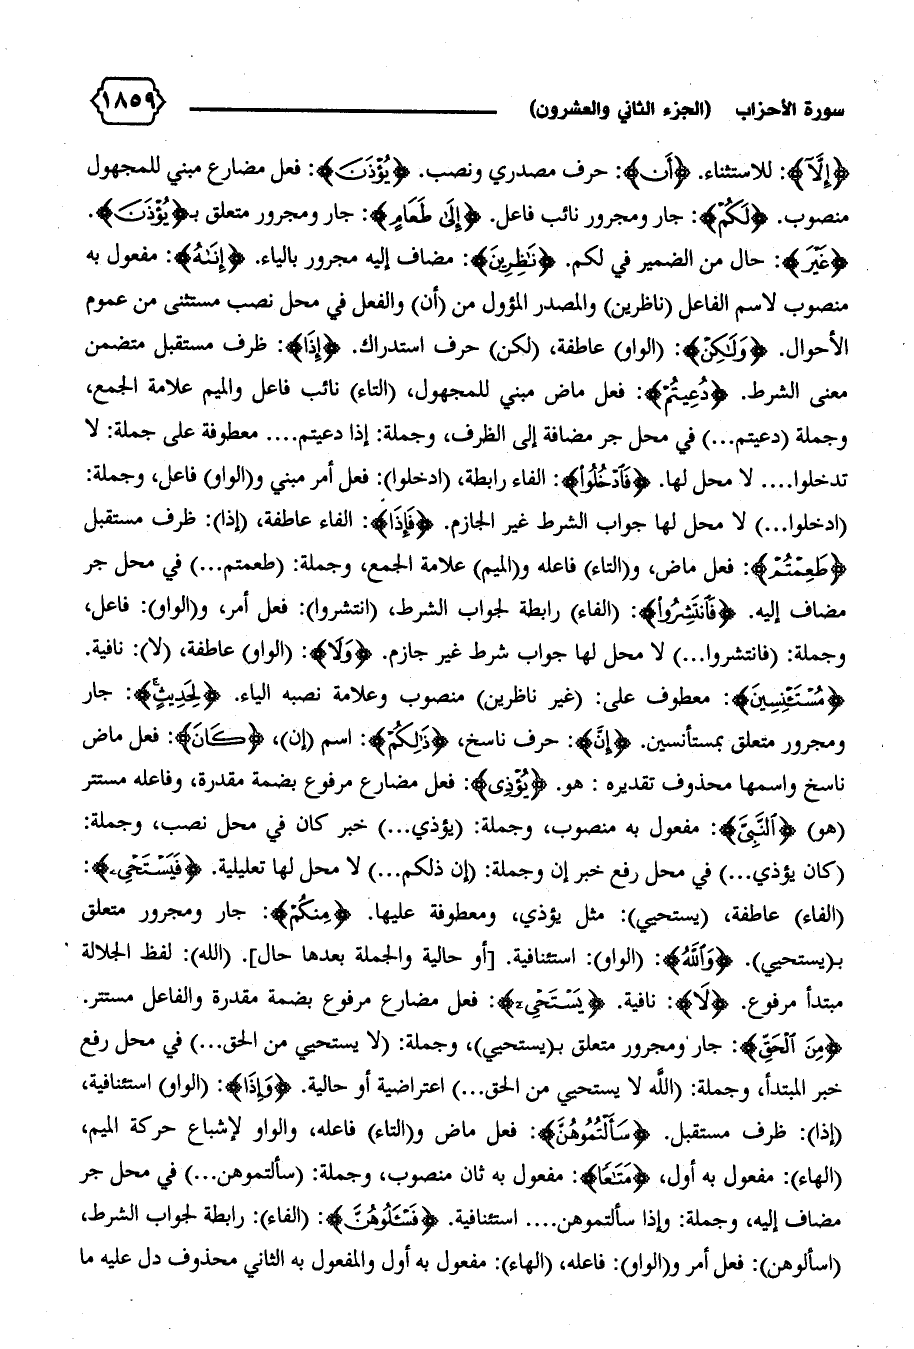 سورة الأحزاب (الجزء الثاني والعشرون) ١٨٥٩
﴿إِلَّآ﴾: للاستثناء. ﴿أَن﴾: حرف مصدري ونصب. ﴿يُؤْذَنَ﴾: فعل مضارع مبني للمجهول
منصوب. ﴿لَكُمْ﴾: جار ومجرور نائب فاعل. ﴿إِلَىٰ طَعَامٍ﴾: جار ومجرور متعلق بـ﴿يُؤْذَنَ﴾.
﴿غَيْرَ﴾: حال من الضمير في لكم. ﴿نَٰظِرِينَ﴾: مضاف إليه مجرور بالياء. ﴿إِنَىٰهُ﴾: مفعول به
منصوب لاسم الفاعل (ناظرين) والمصدر المؤول من (أن) والفعل في محل نصب مستثنى من عموم
الأحوال. ﴿وَلَٰكِنْ﴾: (الواو) عاطفة، (لكن) حرف استدراك. ﴿إِذَا﴾: ظرف مستقبل متضمن
معنى الشرط. ﴿دُعِيتُمْ﴾: فعل ماض مبني للمجهول، (التاء) نائب فاعل والميم علامة الجمع،
وجملة (دعيتم...) في محل جر مضافة إلى الظرف، وجملة: إذا دعيتم.... معطوفة على جملة: لا
تدخلوا.... لا محل لها. ﴿فَٱدْخُلُوا۟﴾: الفاء رابطة، (ادخلوا): فعل أمر مبني و(الواو) فاعل، وجملة:
(ادخلوا...) لا محل لها جواب الشرط غير الجازم. ﴿فَإِذَا﴾: الفاء عاطفة، (إذا): ظرف مستقبل
﴿طَعِمْتُمْ﴾: فعل ماض، و(التاء) فاعله و(الميم) علامة الجمع، وجملة: (طعمتم...) في محل جر
مضاف إليه. ﴿فَٱنتَشِرُوا۟﴾: (الفاء) رابطة لجواب الشرط، (انتشروا): فعل أمر، و(الواو): فاعل،
وجملة: (فانتشروا...) لا محل لها جواب شرط غير جازم. ﴿وَلَا﴾: (الواو) عاطفة، (لا): نافية.
﴿مُسْتَـْٔنِسِينَ﴾: معطوف على: (غير ناظرين) منصوب وعلامة نصبه الياء. ﴿لِحَدِيثٍ ۚ﴾: جار
ومجرور متعلق بمستأنسين. ﴿إِنَّ﴾: حرف ناسخ، ﴿ذَٰلِكُمْ﴾: اسم (إن)، ﴿كَانَ﴾: فعل ماض
ناسخ واسمها محذوف تقديره : هو. ﴿يُؤْذِى﴾: فعل مضارع مرفوع بضمة مقدرة، وفاعله مستتر
(هو) ﴿ٱلنَّبِىَّ﴾: مفعول به منصوب، وجملة: (يؤذي...) خبر كان في محل نصب، وجملة:
(كان يؤذي...) في محل رفع خبر إن وجملة: (إن ذلكم...) لا محل لها تعليلية. ﴿فَيَسْتَحْىِۦ﴾:
(الفاء) عاطفة، (يستحيي): مثل يؤذي، ومعطوفة عليها. ﴿مِنكُمْ﴾: جار ومجرور متعلق
بـ(يستحيي). ﴿وَٱللَّهُ﴾: (الواو): استئنافية. [أو حالية والجملة بعدها حال]. (الله): لفظ الجلالة
مبتدأ مرفوع. ﴿لَا﴾: نافية. ﴿يَسْتَحْىِۦ﴾: فعل مضارع مرفوع بضمة مقدرة والفاعل مستتر.
﴿مِنَ ٱلْحَقِّ﴾: جار ومجرور متعلق بـ(يستحيي)، وجملة: (لا يستحيي من الحق...) في محل رفع
خبر المبتدأ، وجملة: (الله لا يستحيي من الحق...) اعتراضية أو حالية. ﴿وَإِذَا﴾: (الواو) استئنافية،
(إذا): ظرف مستقبل. ﴿سَأَلْتُمُوهُنَّ﴾: فعل ماض و(التاء) فاعله، والواو لإشباع حركة الميم،
(الهاء): مفعول به أول، ﴿مَتَٰعًا﴾: مفعول به ثان منصوب، وجملة: (سألتموهن...) في محل جر
مضاف إليه، وجملة: وإذا سألتموهن.... استئنافية. ﴿فَسْـَٔلُوهُنَّ﴾: (الفاء): رابطة لجواب الشرط،
(اسألوهن): فعل أمر و(الواو): فاعله، (الهاء): مفعول به أول والمفعول به الثاني محذوف دل عليه ما